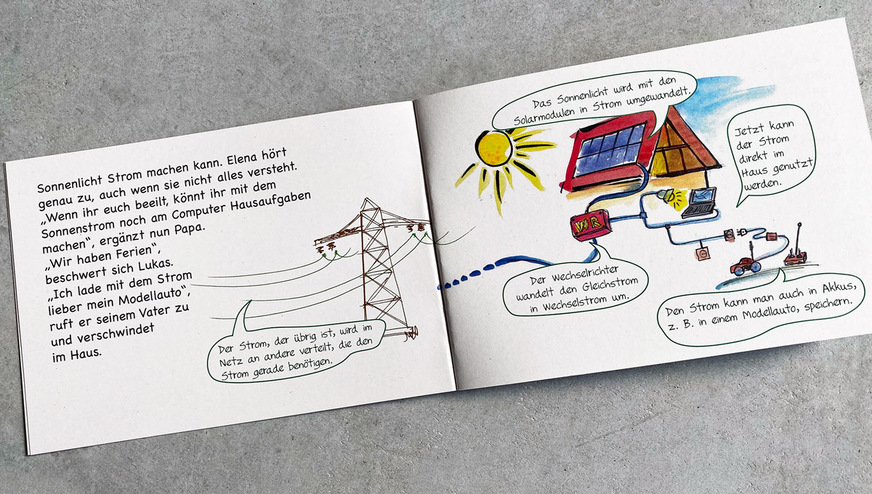 Sonnenlicht Strom machen kann. Elena hört
genau zu, auch wenn sie nicht alles versteht.
„Wenn ihr euch beeilt, könnt ihr mit dem
Sonnenstrom noch am Computer Hausaufgaben
machen“, ergänzt nun Papa.
„Wir haben Ferien“,
beschwert sich Lukas.
„Ich lade mit dem Strom
lieber mein Modellauto“,
ruft er seinem Vater zu
und verschwindet
im Haus.
Der Strom, der übrig ist, wird im
Netz an andere verteilt, die den
Strom gerade benötigen.
Das Sonnenlicht wird mit den
Solarmodulen in Strom umgewandelt.
Jetzt kann
der Strom
direkt im
Haus genutzt
werden.
Der Wechselrichter
wandelt den Gleichstrom
in Wechselstrom um.
Den Strom kann man auch in Akkus,
z. B. in einem Modellauto, speichern.